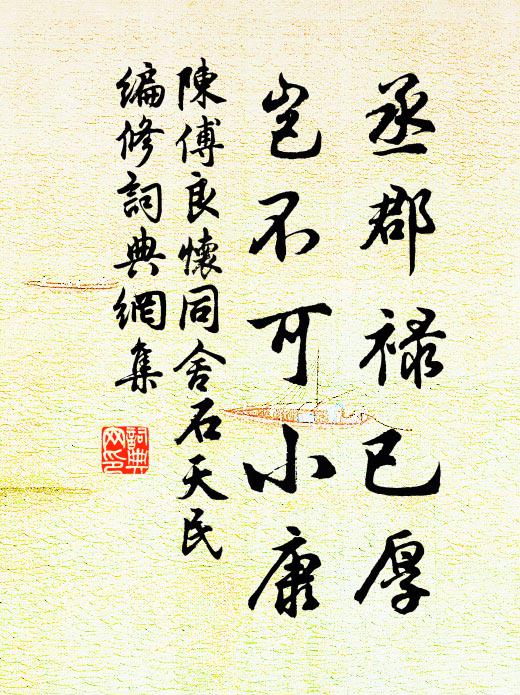 丞郡禄已厚
岂不可小康
陳傅良懷同舍石天民
編修詞典網集
詞典
网印